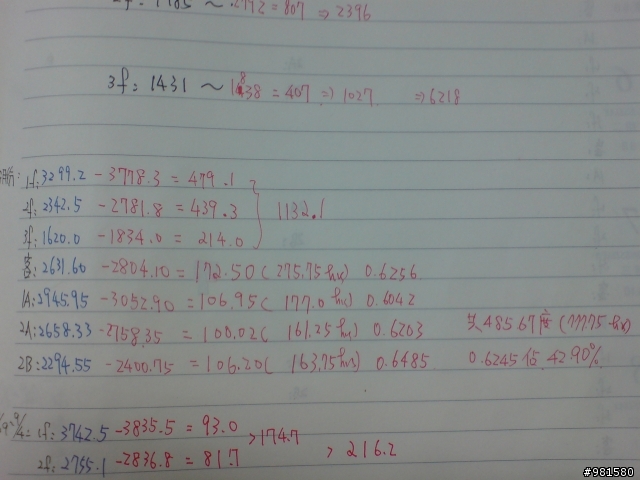 ~ .2792 = 807 ⇒ 2396
3f: 1431 ~ 1838 = 407 ⇒ 1027 ⇒ 6218
1f: 3299.2 - 3778.3 = 479.1
2f: 2342.5 - 2781.8 = 439.3 } 1132.1
3f: 1620.0 - 1834.0 = 214.0
客: 2631.60 - 2804.10 = 172.50 ( 275.75 hr) 0.6256
1A: 2945.95 - 3052.90 = 106.95 ( 177.0 hr) 0.6042
2A: 2658.33 - 2758.35 = 100.02 ( 161.25 hr) 0.6203 共 485.67度 (777.75 hr)
2B: 2294.55 - 2400.75 = 106.20 ( 163.75 hr) 0.6485 0.6245 佔 42.90%
1f: 3742.5 - 3835.5 = 93.0 > 174.7
2f: 2755.1 - 2836.8 = 81.7 > 216.2
#981580